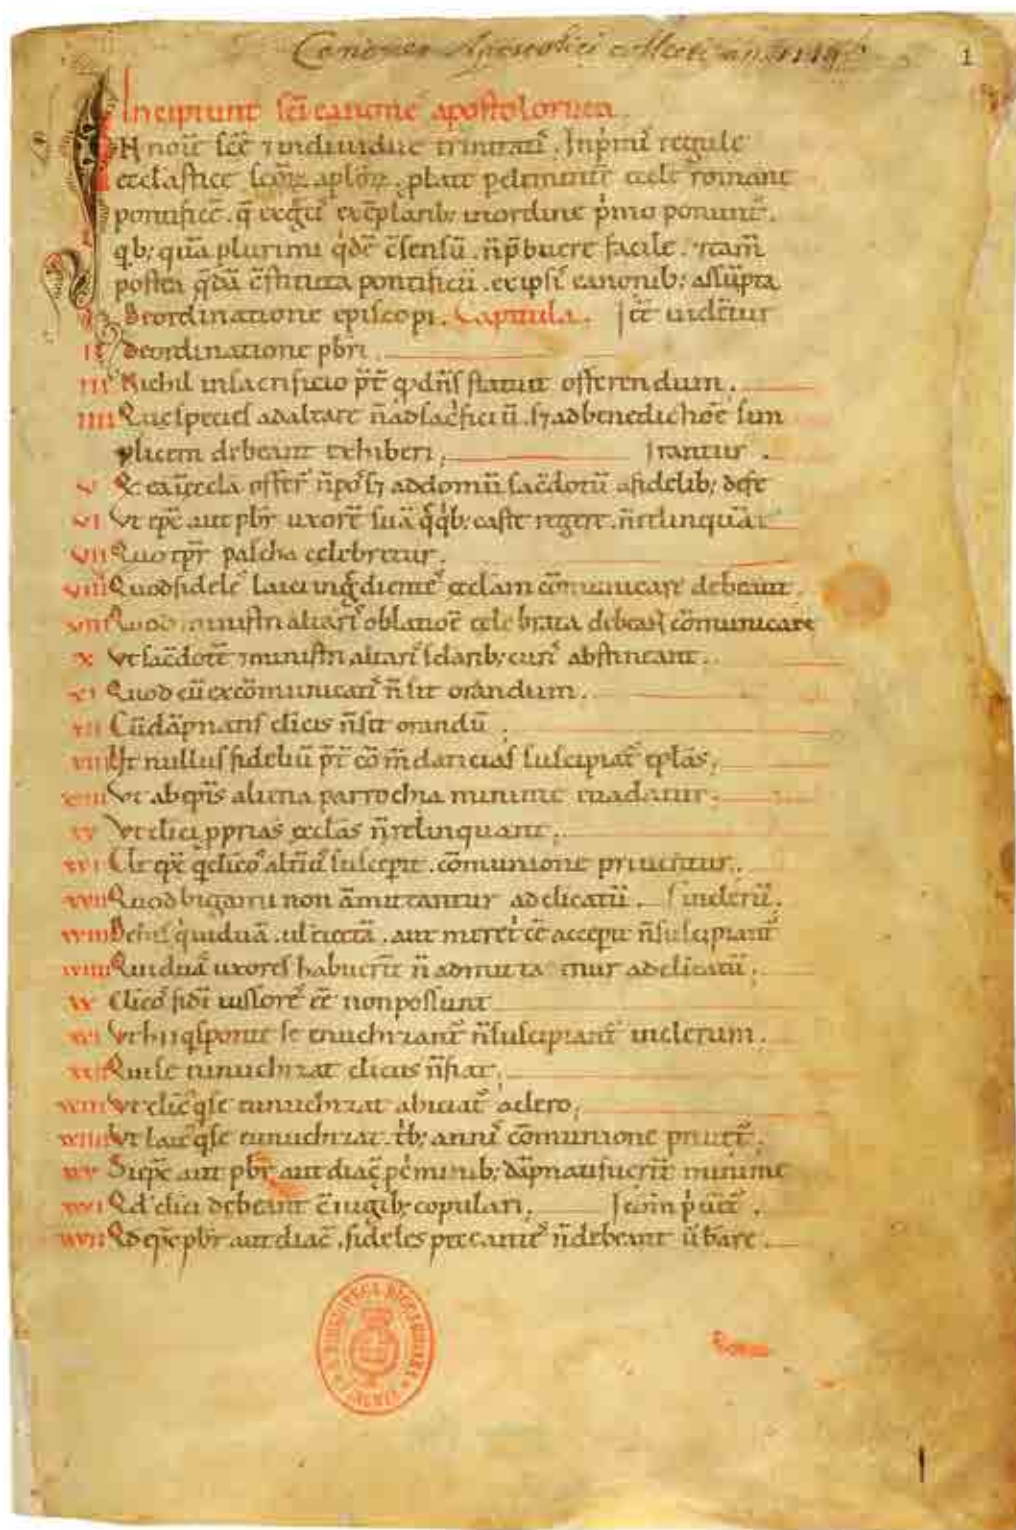 Canones Apostolici collecti
1
Incipiunt sc̄i canones apostolorum.
IN noīe sc̄e ⁊ indiuidue trinitatis. Inp̄mis regule
ecclastice sc̄orꝫ aplōrꝫ
pontificē. ꝑmo ponunt᷑.
qb; quā plurimi q̇dē c̄sensū. n̄ p̄buere facile.
postea q̇dā c̄stituta pontificū. ex ipsis canonib; assūpta
I De ordinatione episcopi. Capitula. ee uidētur
II De ordinatione pbr̄i.
III Nichil in sacrificio p̄t̄ qd dn̄s statuit offerendum.
IIII Que species ad altare n̄ ad sac̄ficiū. sꝫ ad benedictionē sim
plicem debeant exhiberi. rantur.
V offer̄ n̄ pōt sꝫ ad domū sac̄dotū a fidelib; defe
VI Vt ep̄c aut pbr̄ uxorē suā caste regere. n̄ relinquāt
VII Quo tp̄r pascha celebretur.
VIII Quod fideles laici ingrediente᷑ ecclam cōmunicare debeant.
VIIII Quod ministri altaris oblatiōe celebrata debeant cōmunicare
X Vt sac̄dotes ⁊ ministri altaris sclarib; curis abstineant.
XI Quod cū excōmunicatis n̄ sit orandum.
XII Cū dāpnatis clicis n̄ sit orandū.
XIII Vt nullus fideliū p̄t̄ cōm̄daticias suscipiat ep̄las.
XIIII Vt ab ep̄is aliena parrochia minime
XV Vt clici pprias ecclās n̄ relinquant.
XVI Vt ep̄c q̇ clicos suscepit. cōmunione priuetur.
XVII Quod bigami non āmittantur ad clicatū. in clerū.
XVIII De his q̇ uiduā. ul eiectā. aut meret᷑cē accepit n̄ suscipiant᷑
XVIIII Qui duas uxores habuerit n̄ admittatur ad clicatū.
XX Clicos fidei iussores ee non possunt
XXI Vt hii q̇ sponte se eunuchizant n̄ suscipiant᷑ in clerum.
XXII Qui se eunuchizat clicus n̄ fiat.
XXIII Vt clic᷑ q̇ se eunuchizat abiciat᷑ a clero.
XXIIII Vt laic᷑ q̇ se eunuchizat. t̄b; annis cōmunione priuet᷑.
XXV Si ep̄c aut pbr̄ aut diac̄ p̄ c̄minib; dāpnati fuerit minime
XXVI Qd clici debeant c̄iugib; copulari. com
XXVII Qd ep̄c pbr̄ aut diac̄. fideles peccantes n̄ debeant ūbare.
R. BIBLIOTECA RICCARDIANA
FIRENZE